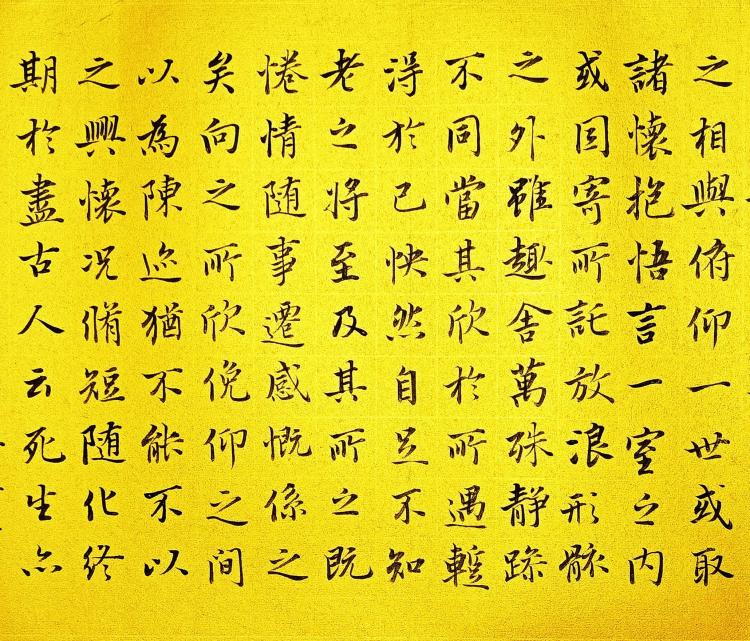 之相與俯仰一世或取
諸懷抱悟言一室之内
或因寄所託放浪形骸
之外雖趣舍萬殊静躁
不同當其欣於所遇蹔
得於己怏然自足不知
老之将至及其所之既
惓情随事遷感慨係之
矣向之所欣俛仰之間
以為陳迹猶不能不以
之興懷况脩短随化終
期於盡古人云死生亦